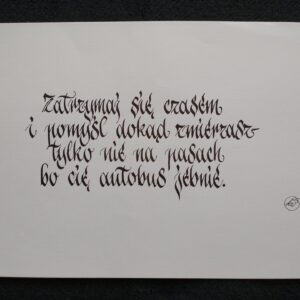 Zatrzymaj się czasem
i pomyśl dokąd zmierzasz
tylko nie na pasach
bo cię autobus jebnie.